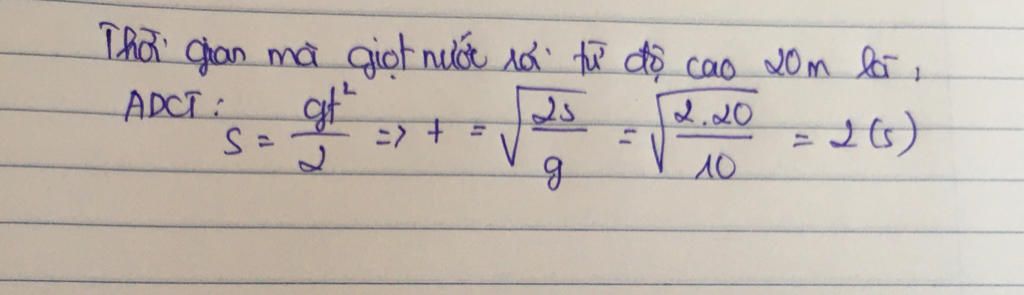 Thời gian mà giọt nước rơi từ độ cao 20m là,
ADCT: S = gt²/2 => t = √(2s/g) = √(2.20/10) = 2 (s)